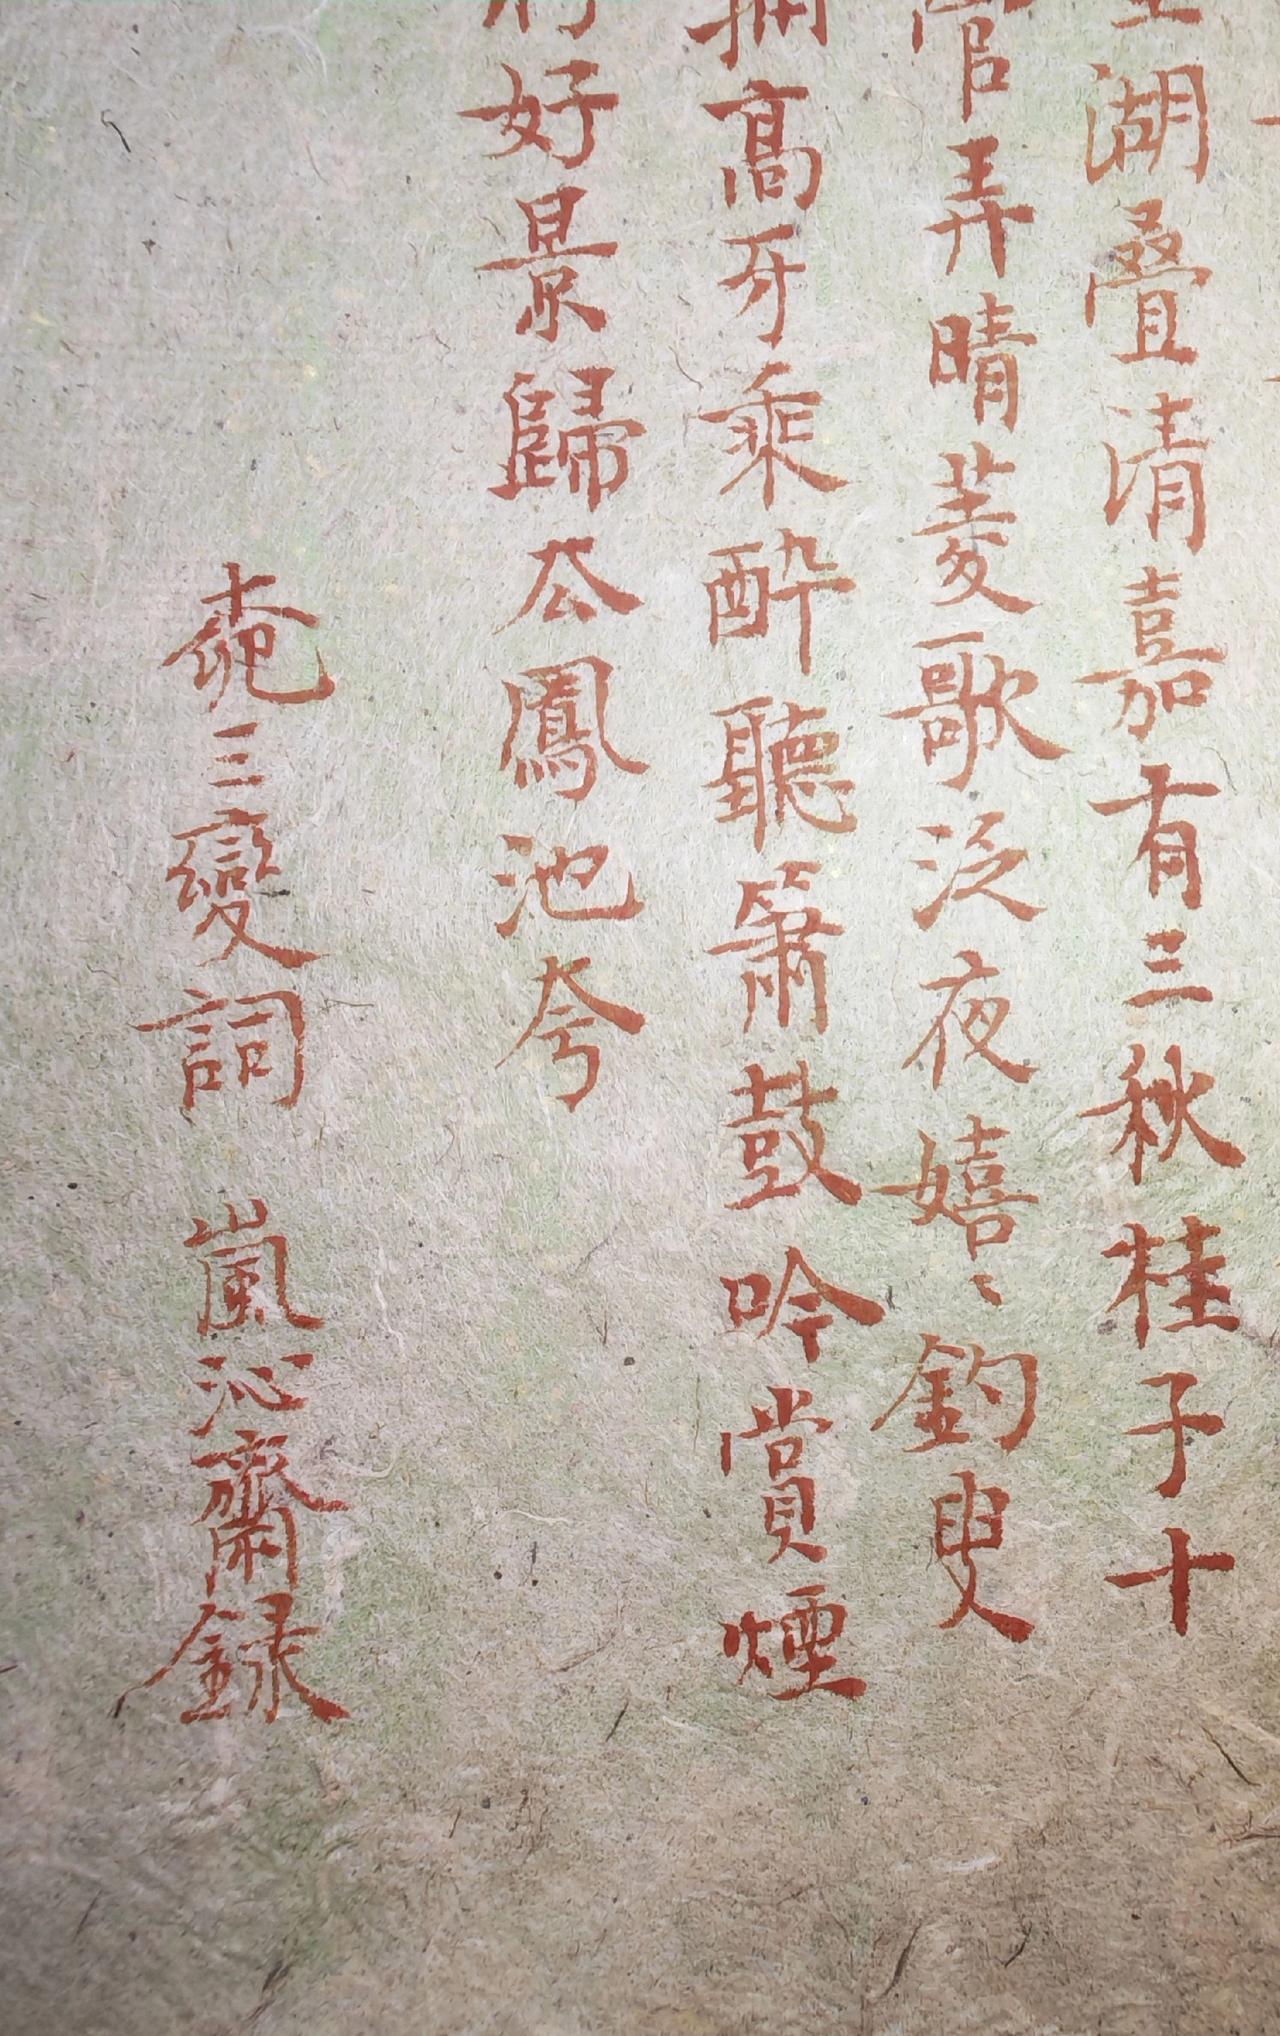 湖叠清嘉有三秋桂子十
管弄晴菱歌泛夜嬉〻釣叟
高牙乘醉聽簫鼓吟賞煙
好景歸厺鳳池夸
三變詞 嵐沁齋録